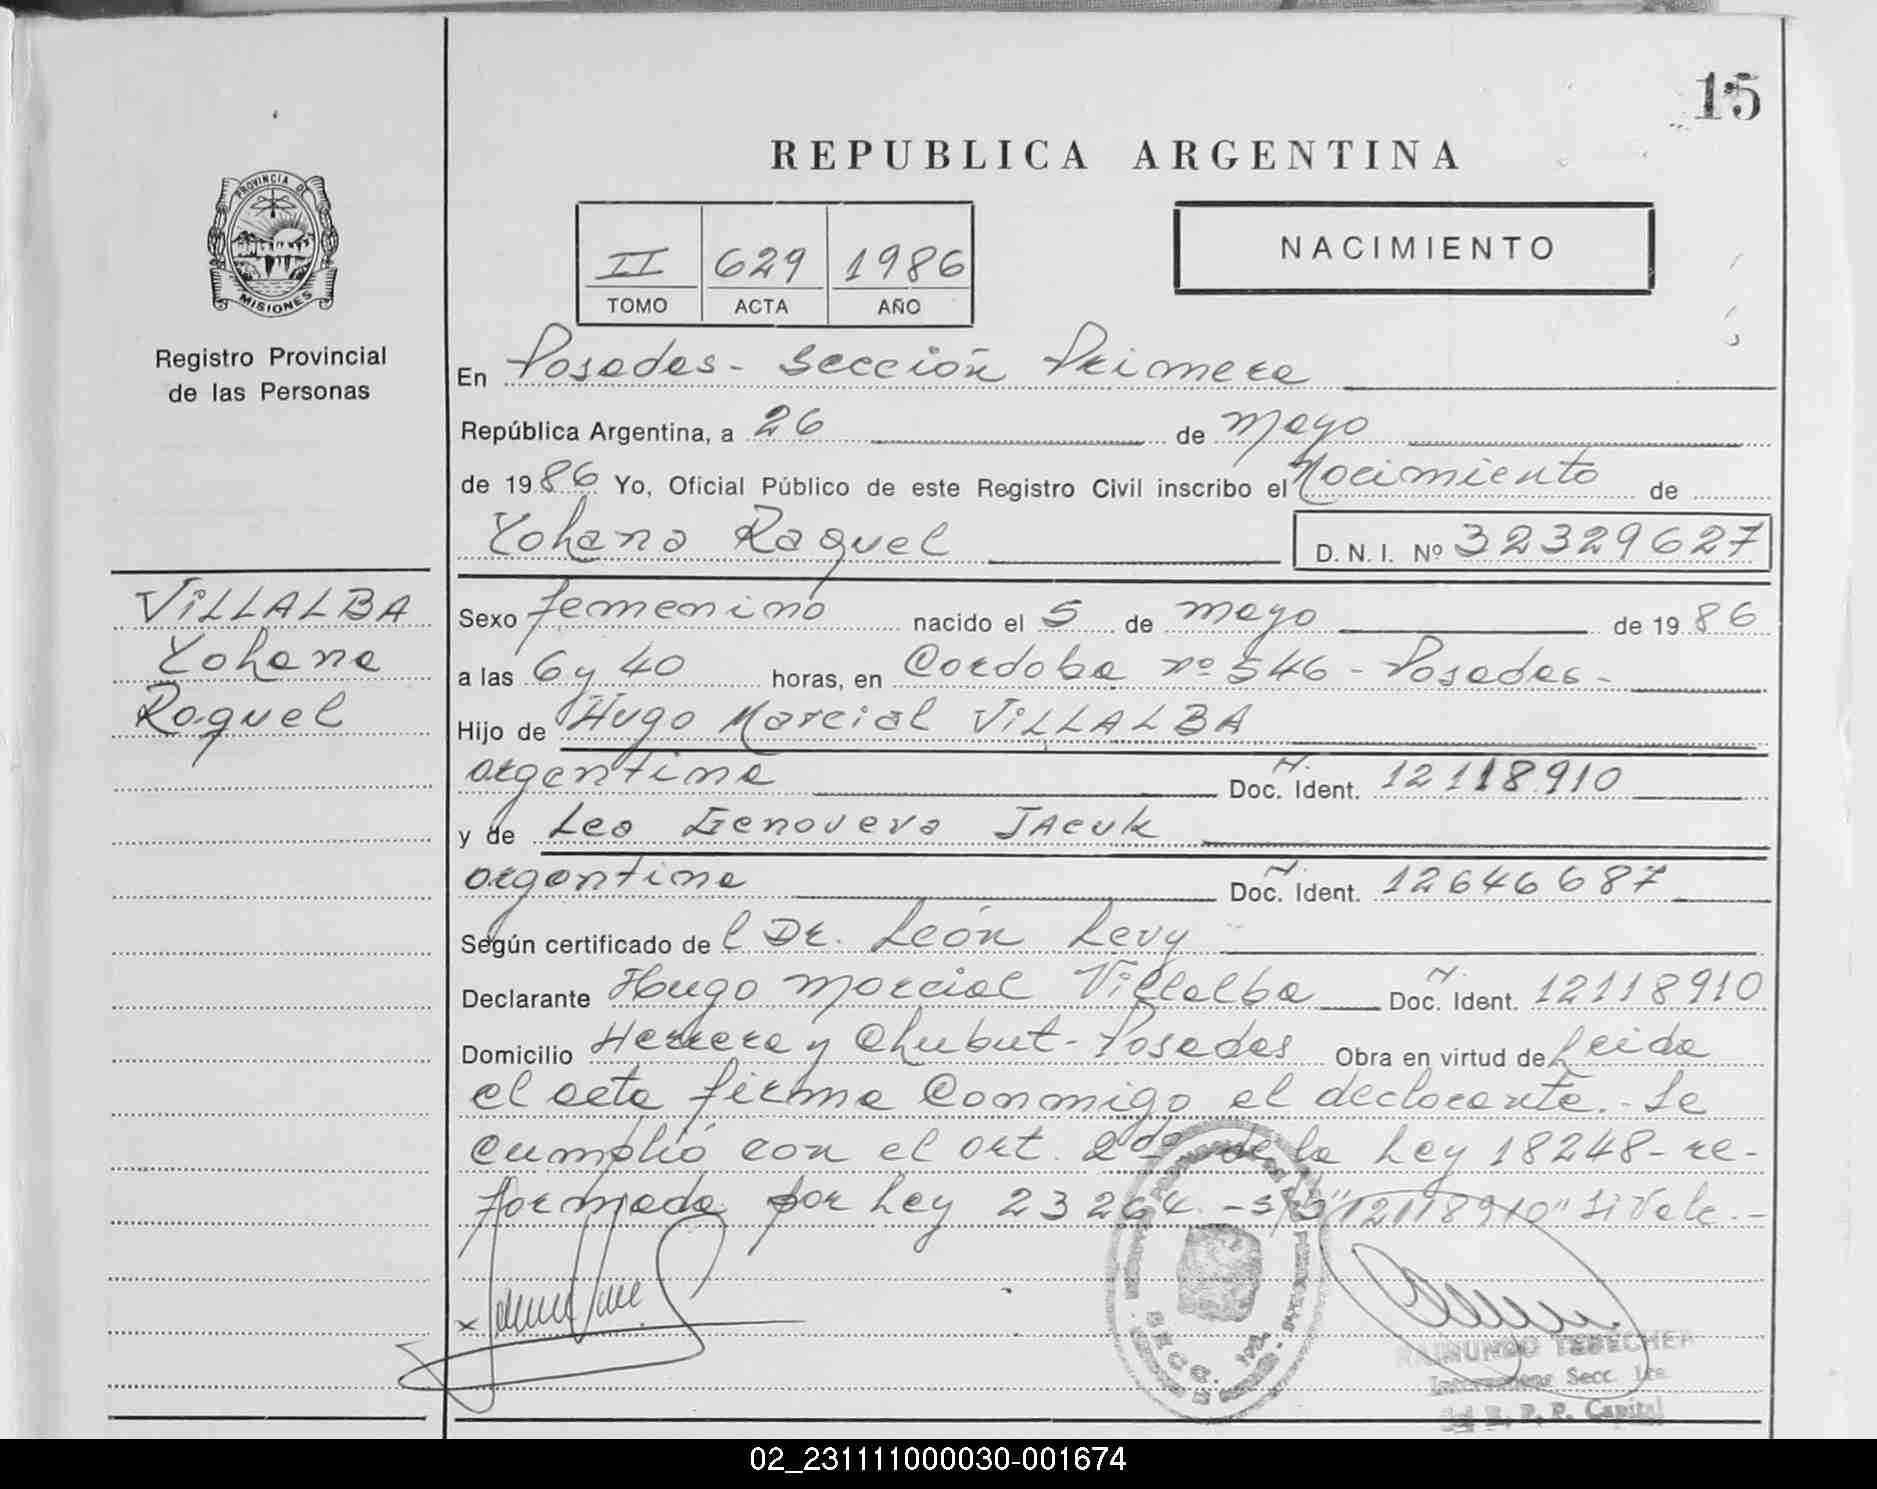 15
REPUBLICA ARGENTINA
PROVINCIA DE
MISIONES
Registro Provincial
de las Personas
II 629 1986
TOMO ACTA AÑO
NACIMIENTO
En Posadas - Sección Primera
República Argentina, a 26 de Mayo
de 1986 Yo, Oficial Público de este Registro Civil inscribo el Nacimiento de
Yohana Raquel D. N. I. Nº 32329627
VILLALBA
Yohana
Raquel
Sexo femenino nacido el 5 de mayo de 1986
a las 6 y 40 horas, en Cordoba nº 546 - Posadas -
Hijo de Hugo Marcial VILLALBA
argentina Doc. Ident. 12118910
y de Lea Genoveva JACUK
argentina Doc. Ident. 12646687
Según certificado del Dr. León Levy
Declarante Hugo Marcial Villalba Doc. Ident. 12118910
Domicilio Herrera y Chubut - Posadas Obra en virtud de Leida
el acta firma Conmigo el declarante. - Se
cumplió con el art. 2do de la Ley 18248 - re-
formada por Ley 23264. - s/b "12118910" Si Vale. -
SECC. 1ra.
RAIMUNDO TEBECHER
Secc. 1ra.
del R. P. P. Capital
02_231111000030-001674